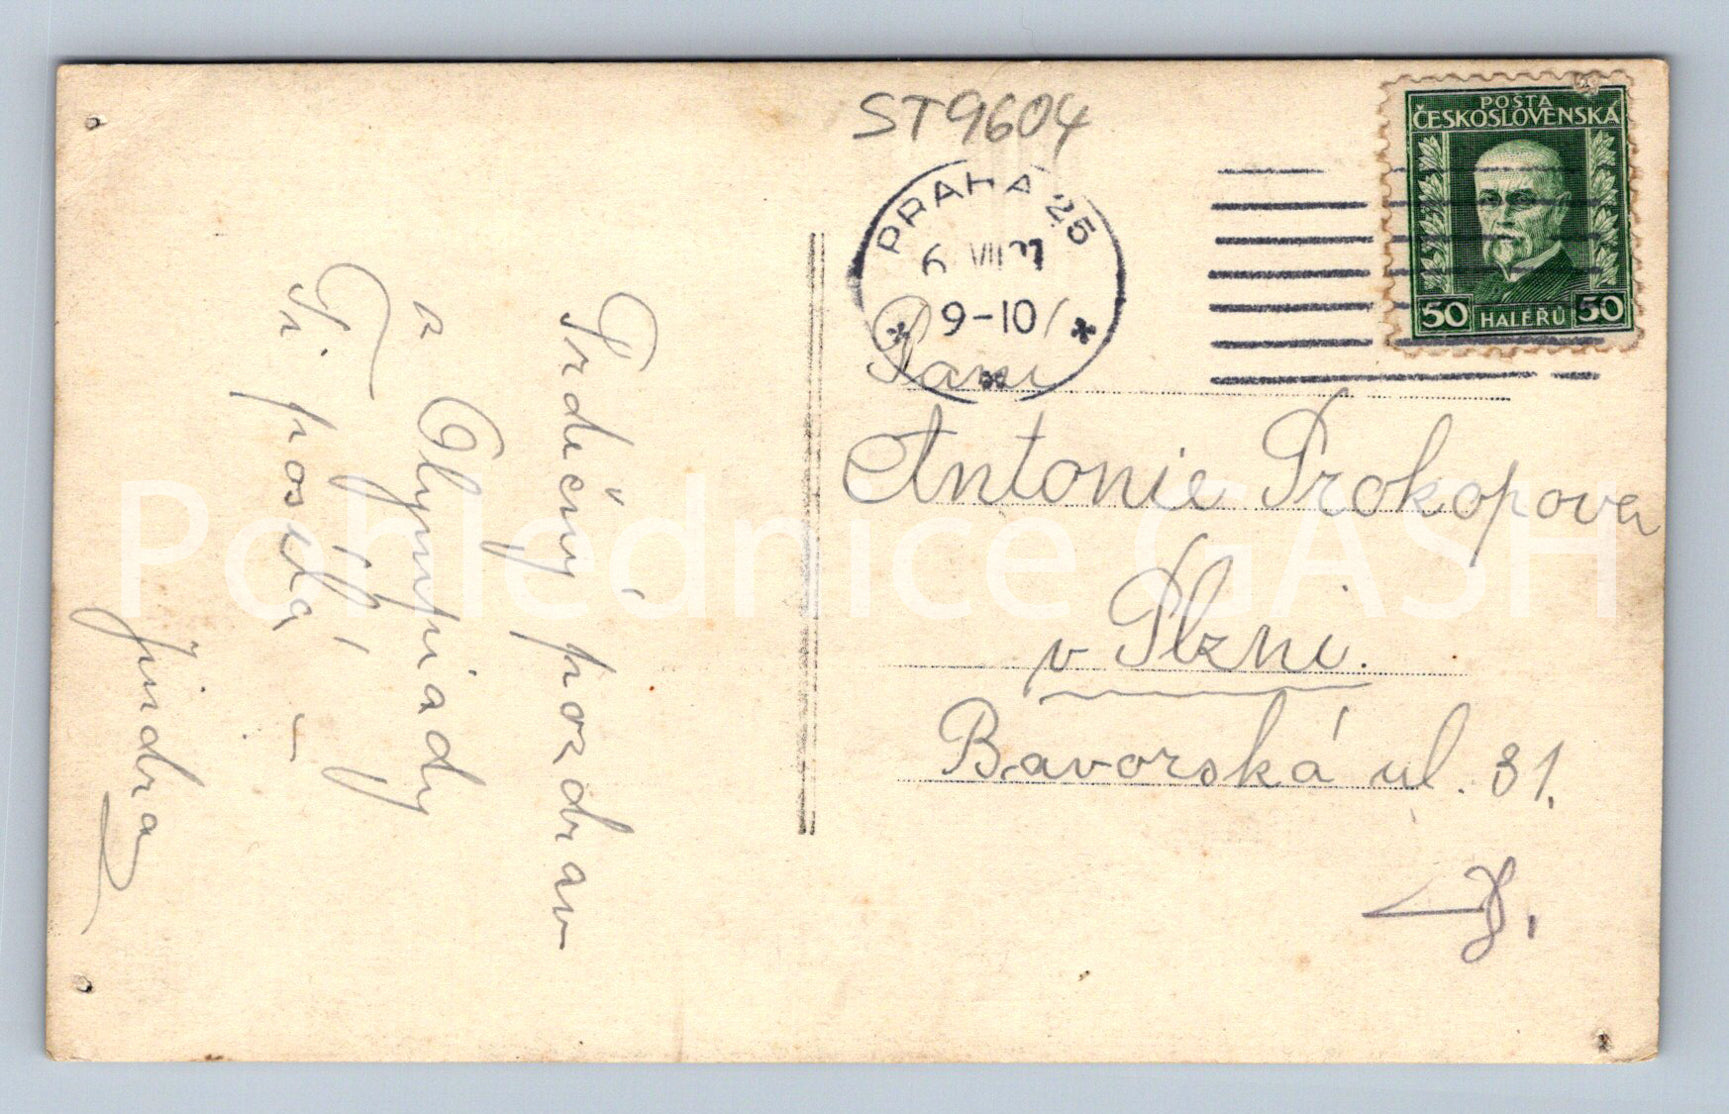 ST9604
POŠTA
ČESKOSLOVENSKÁ
50 HALÉŘŮ 50
PRAHA 25
6 VII 27
9-10
Paní
Antonie Prokopova
v Plzni.
Bavorská ul. 31.
Srdečný pozdrav
z Olympiády
Ti posílá,
Jindra
Pohlednice GASH